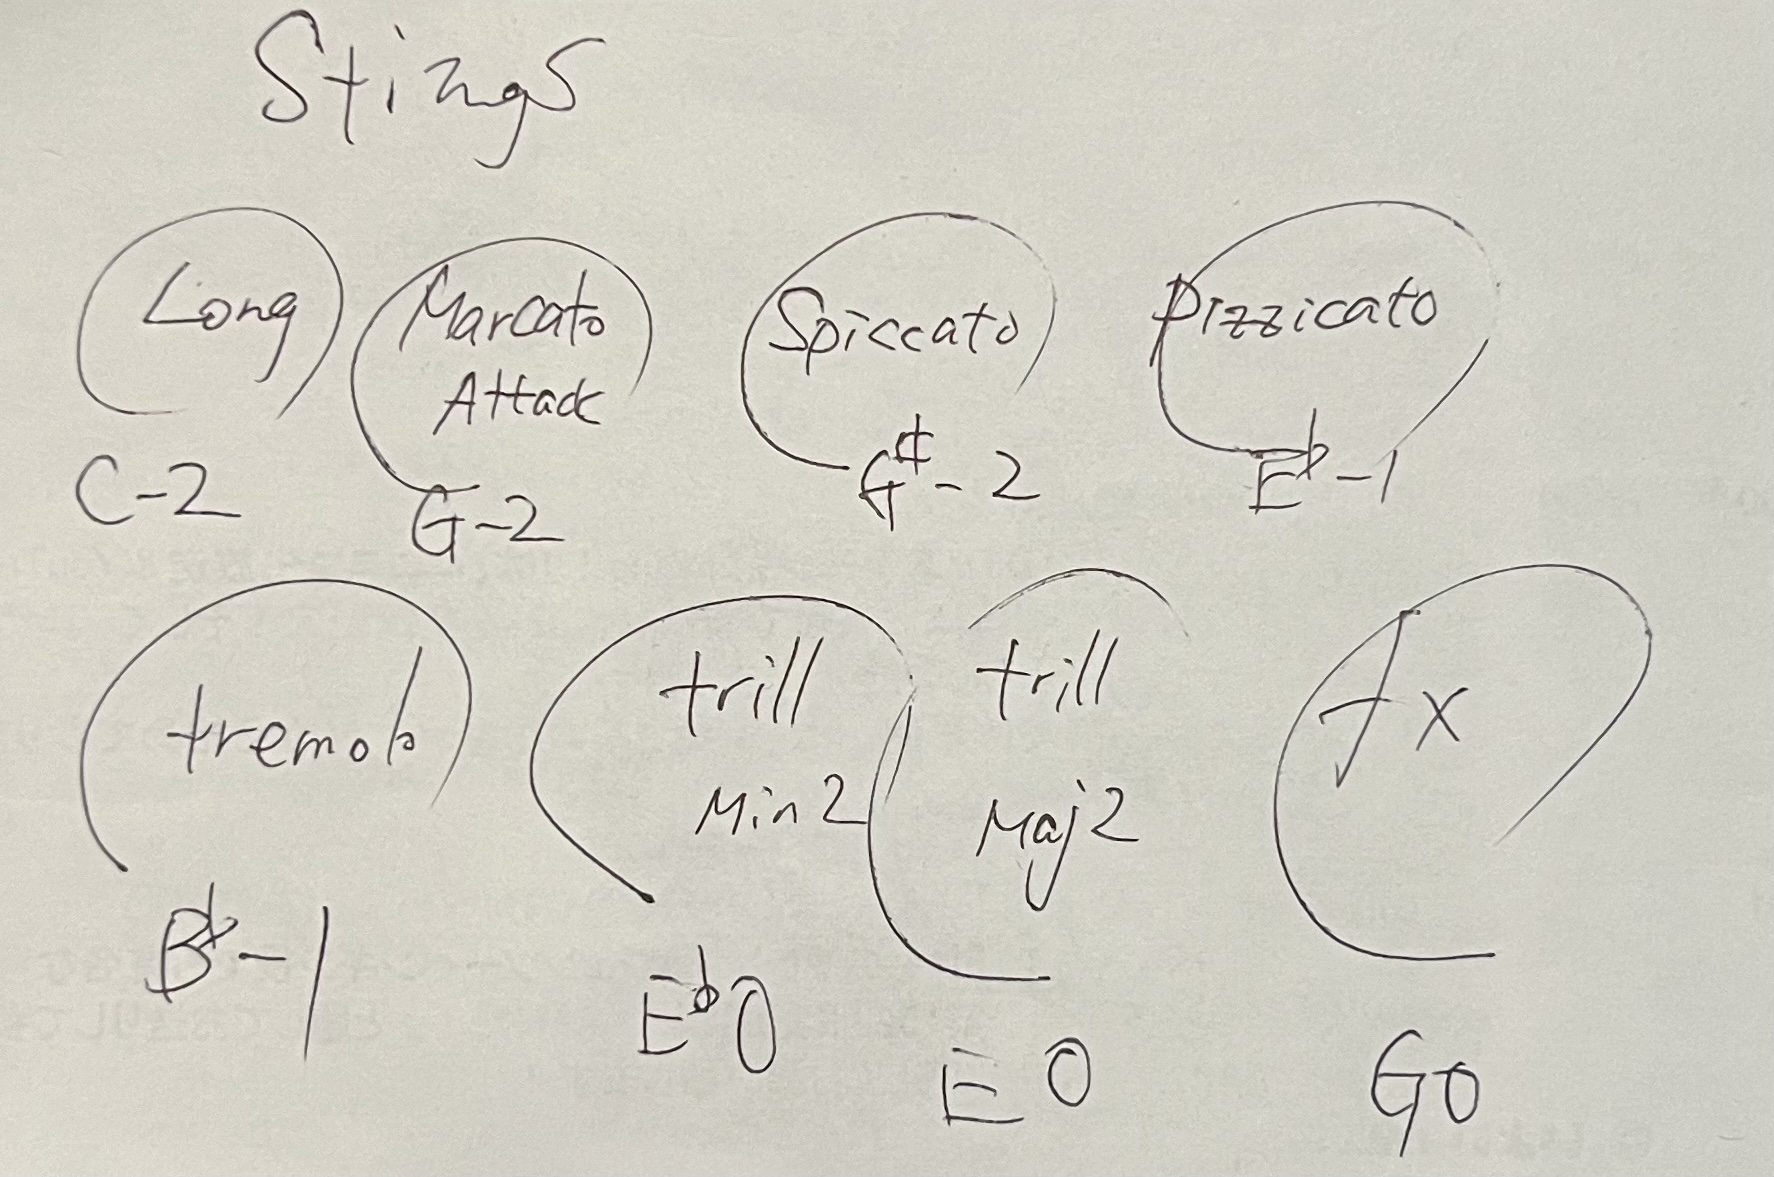 Stings
Long
Marcato
Attack
Spiccato
Pizzicato
C-2
G-2
G#-2
E♭-1
tremolo
trill
Min2
trill
Maj2
fx
B♭-1
E♭0
E0
G0